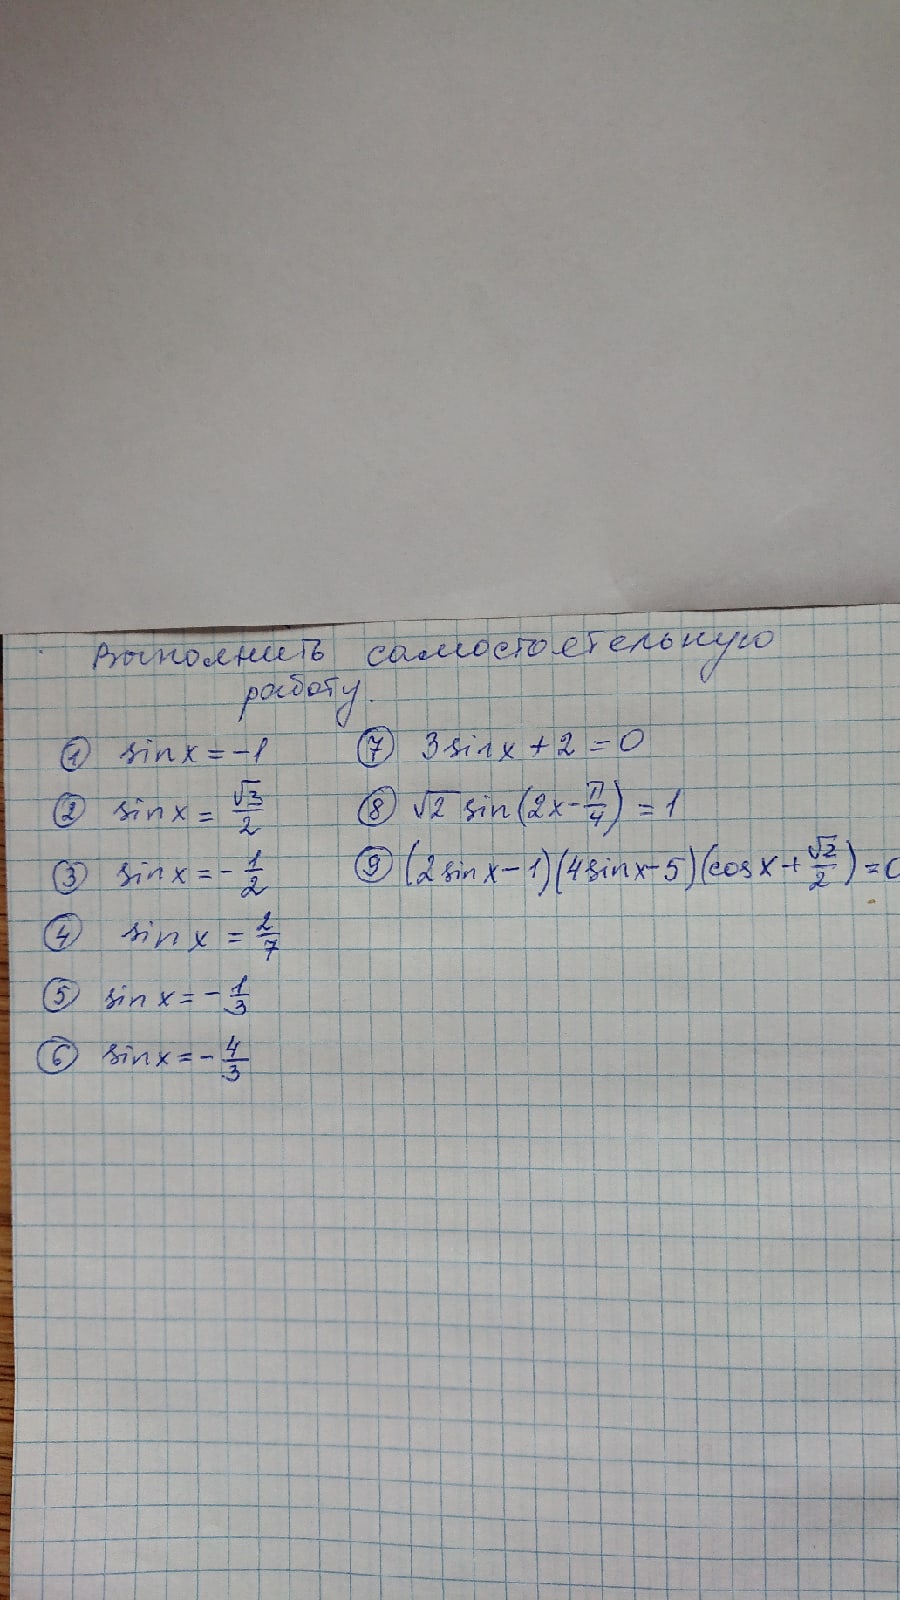 Выполнить самостоятельную
работу.
① sin x = -1
② sin x = √3/2
③ sin x = - 1/2
④ sin x = 2/7
⑤ sin x = - 1/3
⑥ sin x = - 4/3
⑦ 3 sin x + 2 = 0
⑧ √2 sin(2x - π/4) = 1
⑨ (2 sin x - 1)(4 sin x - 5)(cos x + √2/2) = 0